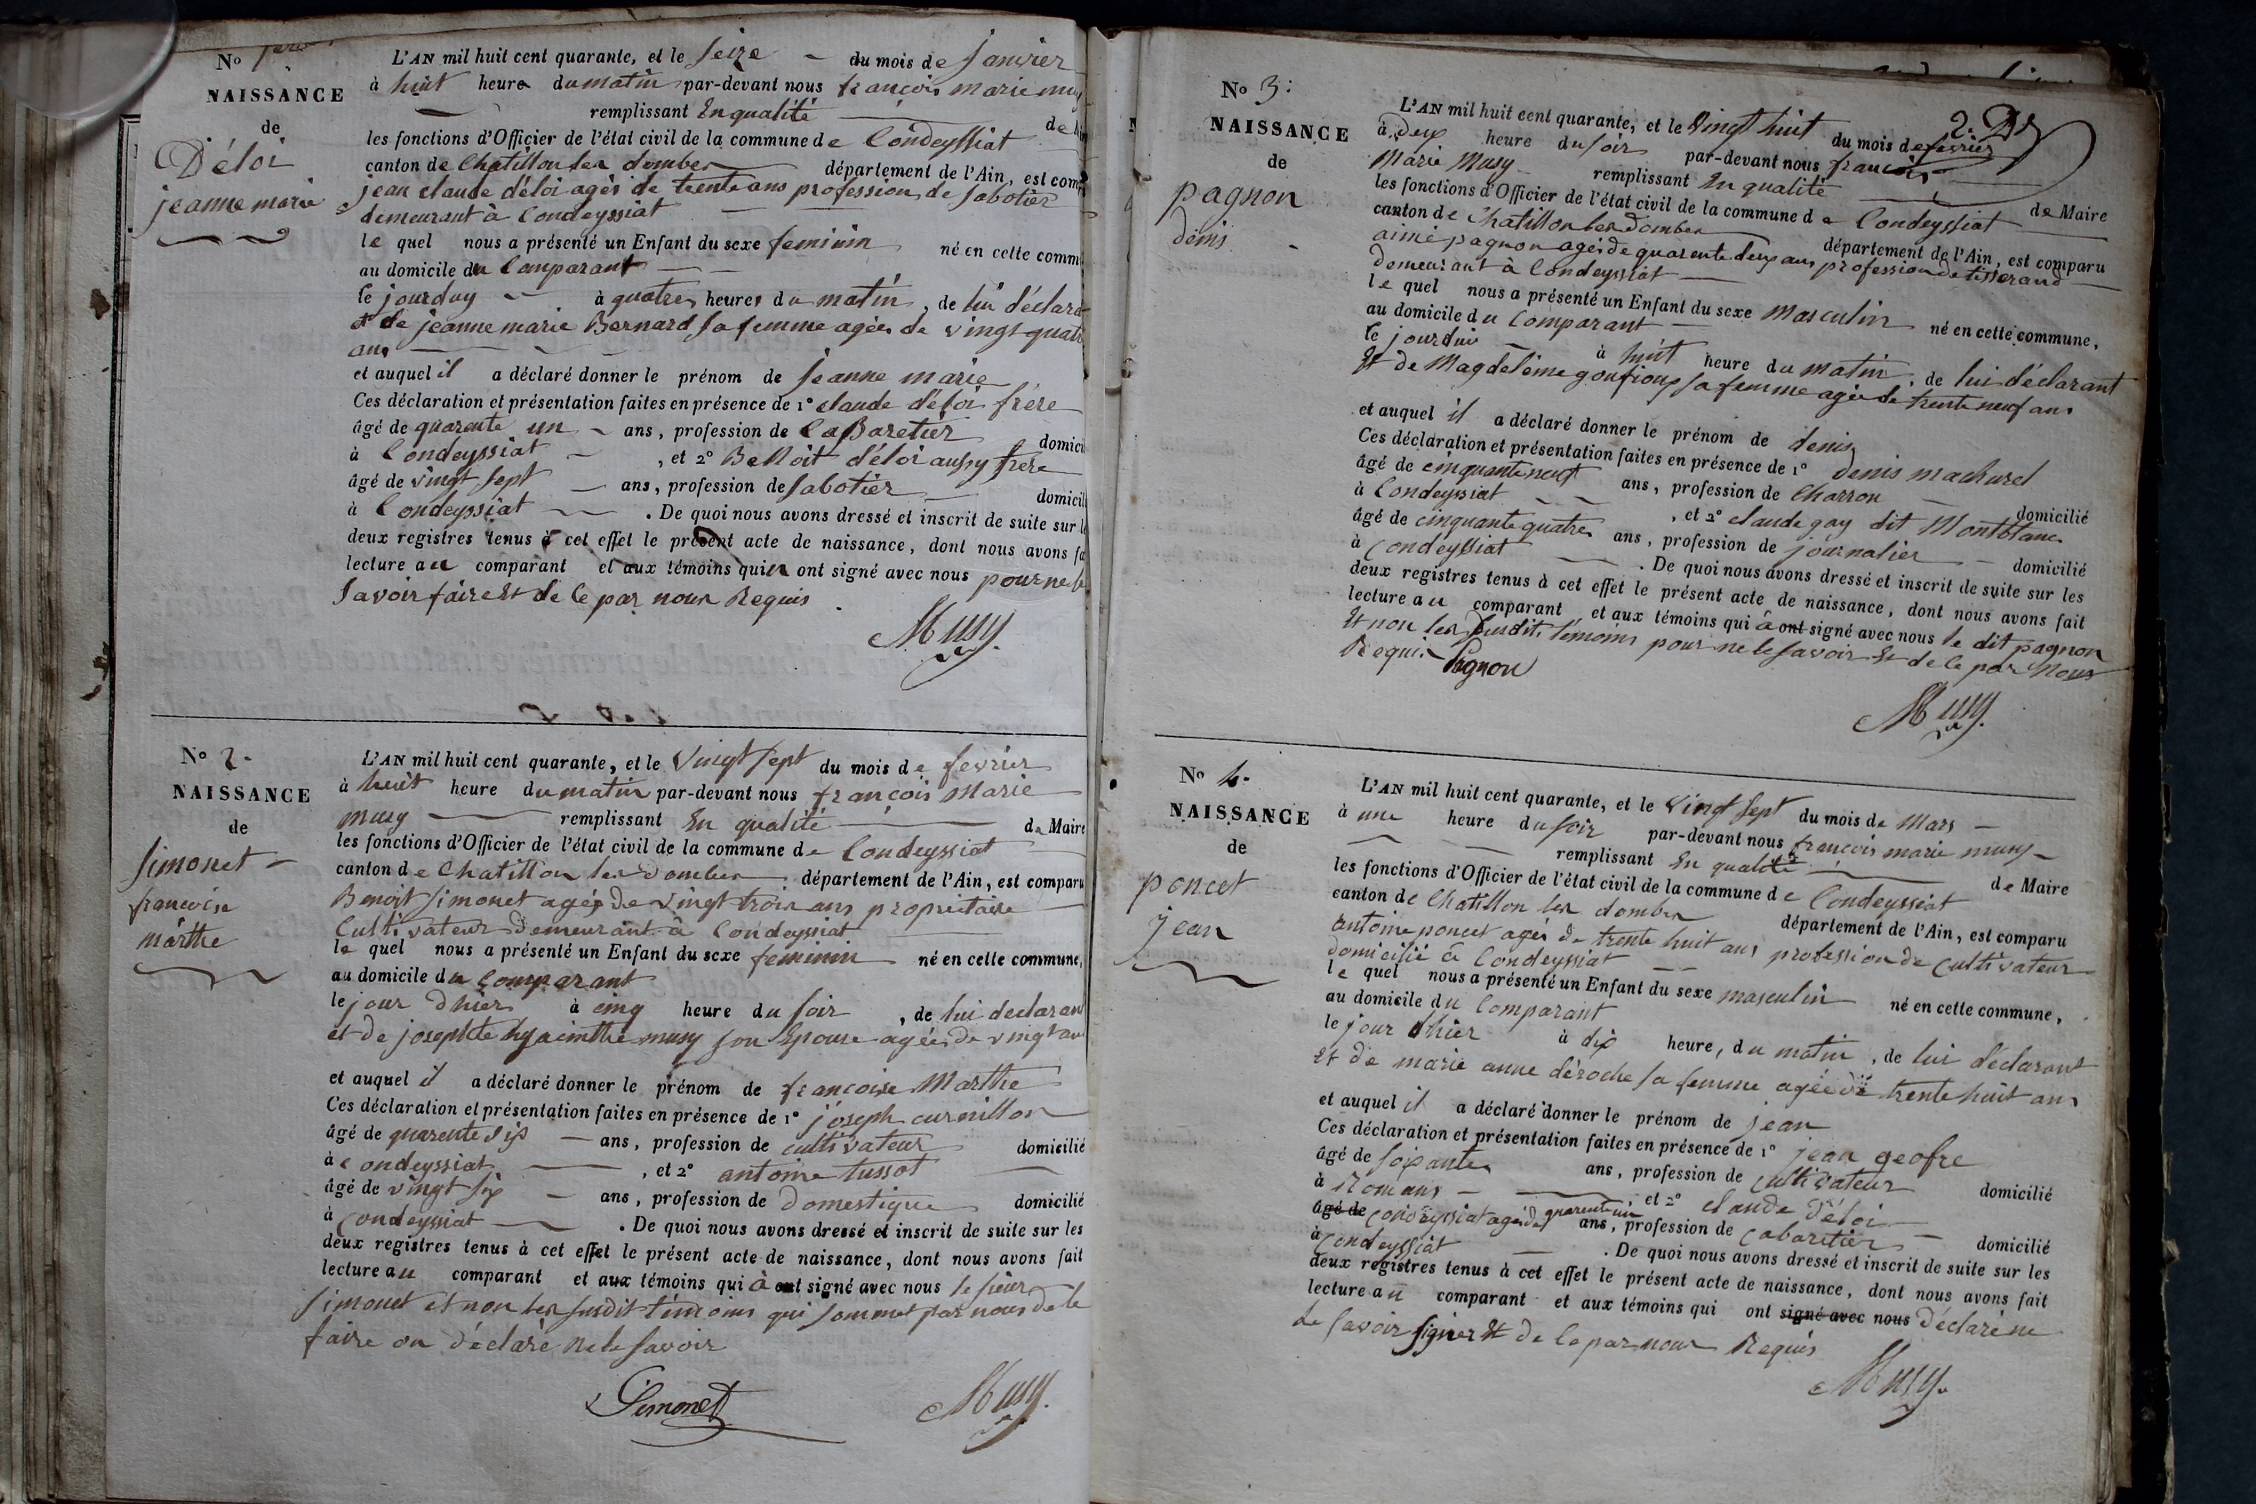 No 1er
NAISSANCE
de
Déloi
jeanne marie
L'AN mil huit cent quarante, et le Seize du mois de janvier
à huit heure du matin par-devant nous françois marie musy
remplissant En qualité de
les fonctions d'Officier de l'état civil de la commune de Condeyssiat
canton de Chatillon les dombes département de l'Ain, est comp
jean claude déloi agés de trente ans profession de Sabotier
demeurant à Condeyssiat
le quel nous a présenté un Enfant du sexe feminin né en cette comm
au domicile du Comparant
le jourduy à quatres heures du matin, de lui déclara
et de jeanne marie Bernard sa femme agée de vingt quatr
ans
et auquel il a déclaré donner le prénom de jeanne marie
Ces déclaration et présentation faites en présence de 1° claude déloi frère
âgé de quarente un ans, profession de CaBaretier domici
à Condeyssiat, et 2° Benoit déloi aussy frère
âgé de vingt sept ans, profession de Sabotier domicil
à Condeyssiat. De quoi nous avons dressé et inscrit de suite sur l
deux registres tenus à cet effet le présent acte de naissance, dont nous avons fa
lecture au comparant et aux témoins qui n ont signé avec nous pour ne le
Savoir faire Et de Ce par nous Requis
Musy
No 2.
NAISSANCE
de
Simonet
francoise
marthe
L'AN mil huit cent quarante, et le Vingt sept du mois de fevrier
à huit heure du matin par-devant nous françois Marie
musy remplissant En qualité de Maire
les fonctions d'Officier de l'état civil de la commune de Condeyssiat
canton de Chatillon les dombes département de l'Ain, est comparu
Benoit Simonet agés de vingt trois ans propriétaire
Cultivateur Demeurant à Condeyssiat
le quel nous a présenté un Enfant du sexe feminin né en cette commune,
au domicile du Comparant
le jour dhier à cinq heure du soir, de lui declarant
et de josephte hyacinthe musy son Epouse agée de vingt an
et auquel il a déclaré donner le prénom de francoise Marthe
Ces déclaration et présentation faites en présence de 1° joseph curnillon
âgé de quarente sis ans, profession de cultivateur domicilié
à Condeyssiat, et 2° antoine tussot
âgé de vingt six ans, profession de Domestique domicilié
à Condeyssiat. De quoi nous avons dressé et inscrit de suite sur les
deux registres tenus à cet effet le présent acte de naissance, dont nous avons fait
lecture au comparant et aux témoins qui à ont signé avec nous le sieur
Simonet et non les susdit témoins qui sommet par nous de le
faire on déclaré ne le savoir
Simonet
Musy
2.
No 3:
NAISSANCE
de
pagnon
denis
L'AN mil huit cent quarante, et le Vingt huit du mois de fevrier
à deux heure du soir par-devant nous francois
Marie Musy remplissant En qualité de Maire
les fonctions d'Officier de l'état civil de la commune de Condeyssiat
canton de Chatillon les Dombes département de l'Ain, est comparu
aimé pagnon agés de quarente deux ans profession de tisserand
demeurant à Condeyssiat
le quel nous a présenté un Enfant du sexe Masculin né en cette commune,
au domicile du Comparant
le jourdui à huit heure du matin, de lui déclarant
Et de Magdeleine goufioux sa femme agée de trente neuf ans
et auquel il a déclaré donner le prénom de denis
Ces déclaration et présentation faites en présence de 1° denis machurel
âgé de cinquante neuf ans, profession de Charron domicilié
à Condeyssiat, et 2° claude gay dit Montblanc
âgé de cinquante quatre ans, profession de journalier domicilié
à Condeyssiat. De quoi nous avons dressé et inscrit de suite sur les
deux registres tenus à cet effet le présent acte de naissance, dont nous avons fait
lecture au comparant et aux témoins qui à ont signé avec nous le dit pagnon
Et non les susdits témoins pour ne le savoir Et de Ce par Nous
Requis Pagnon
Musy
No 4.
NAISSANCE
de
poncet
jean
L'AN mil huit cent quarante, et le Vingt Sept du mois de Mars
à une heure du soir par-devant nous françois marie musy
remplissant En qualité de Maire
les fonctions d'Officier de l'état civil de la commune de Condeyssiat
canton de Chatillon les dombes département de l'Ain, est comparu
antoine poncet agés de trente huit ans profession de cultivateur
domicilié à Condeyssiat
le quel nous a présenté un Enfant du sexe masculin né en cette commune,
au domicile du Comparant
le jour dhier à dix heure, du matin, de lui déclarant
Et de marie anne déroche sa femme agée de trente huit ans
et auquel il a déclaré donner le prénom de jean
Ces déclaration et présentation faites en présence de 1° jean geofre
âgé de soixante ans, profession de cultivateur domicilié
à Romans, et 2° claude déloi
âgé de Condeyssiat agé de quarente un ans, profession de cabaretier domicilié
à Condeyssiat. De quoi nous avons dressé et inscrit de suite sur les
deux registres tenus à cet effet le présent acte de naissance, dont nous avons fait
lecture au comparant et aux témoins qui ont signé avec nous déclaré ne
le savoir signer Et de Ce par nous Requis
Musy